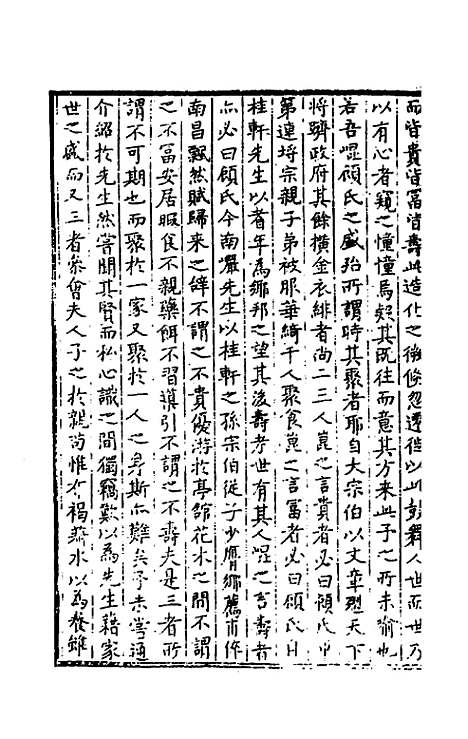 而皆貴皆富皆壽此造化之微倏忽遷徙以此鼓舞人世而世乃
以有心者窺之憧憧焉疑其既往而意其方来此予之所未喻也
若吾崑顧氏之盛殆所謂時其聚者耶自大宗伯以文章型天下
将躋政府其餘横金衣緋者尚二三人崑之言貴者必曰顧氏甲
第連埒宗親子弟被服華綺千人聚食崑之言富者必曰顧氏曰
桂軒先生以耆年為鄉邦之望其後壽考世有其人崑之言壽者
亦必曰顧氏今南巖先生以桂軒之孫宗伯從子少膺鄉薦甫倅
南昌飄然賦歸来之辭不謂之不貴優游於亭舘花木之間不謂
之不富安居暇食不親藥餌不習導引不謂之不壽夫是三者所
謂不可期也而聚於一家又聚於一人之身斯亦難矣予未嘗通
介紹於先生然嘗聞其賢而私心識之間獨竊歎以為先生藉家
世之盛而又三者叅會夫人子之於親尚惟布褐蔬水以為養雖